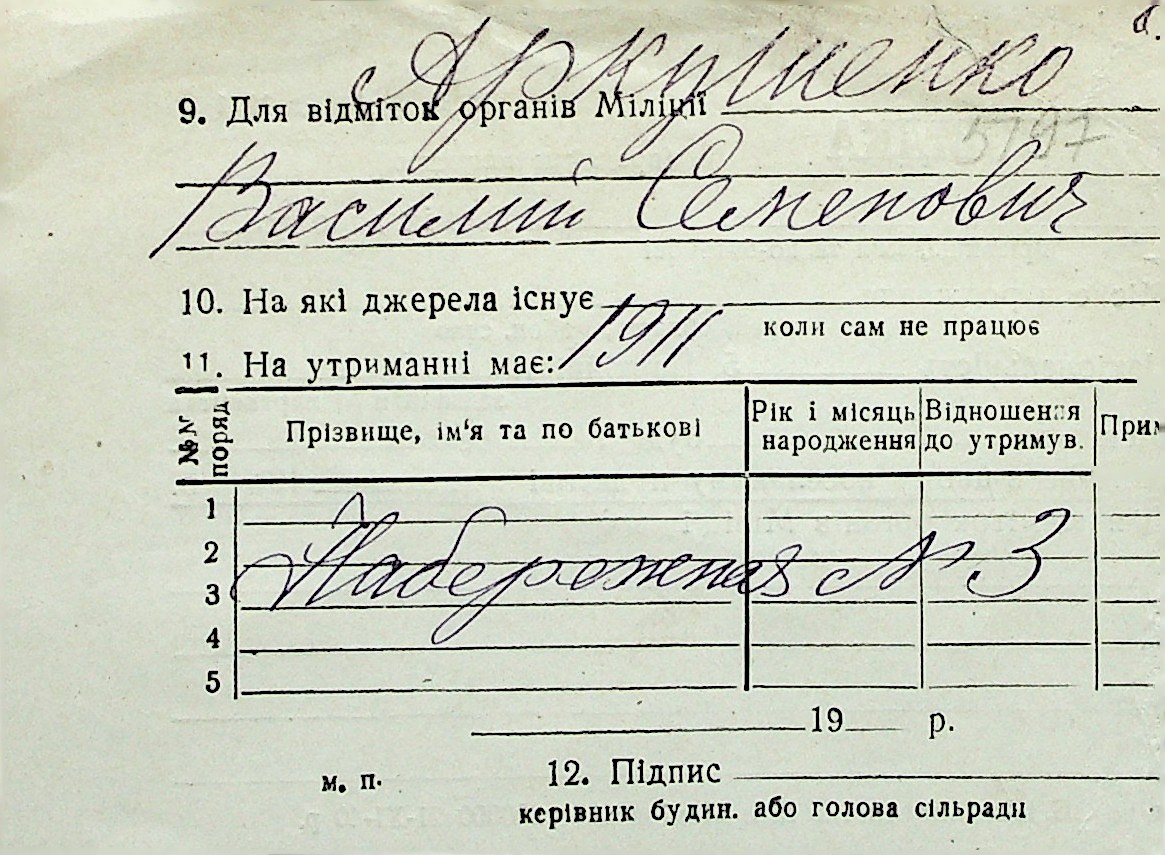 Аркушенко
9. Для відміток органів Міліції
5797
Василий Семенович
10. На які джерела існує
коли сам не працює
1911
11. На утриманні має:
№№ поряд
Прізвище, ім'я та по батькові
Рік і місяць народження
Відношення до утримув.
Прим
1
2
Набережная № 3
3
4
5
19 р.
м. п.
12. Підпис
керівник будин. або голова сільради